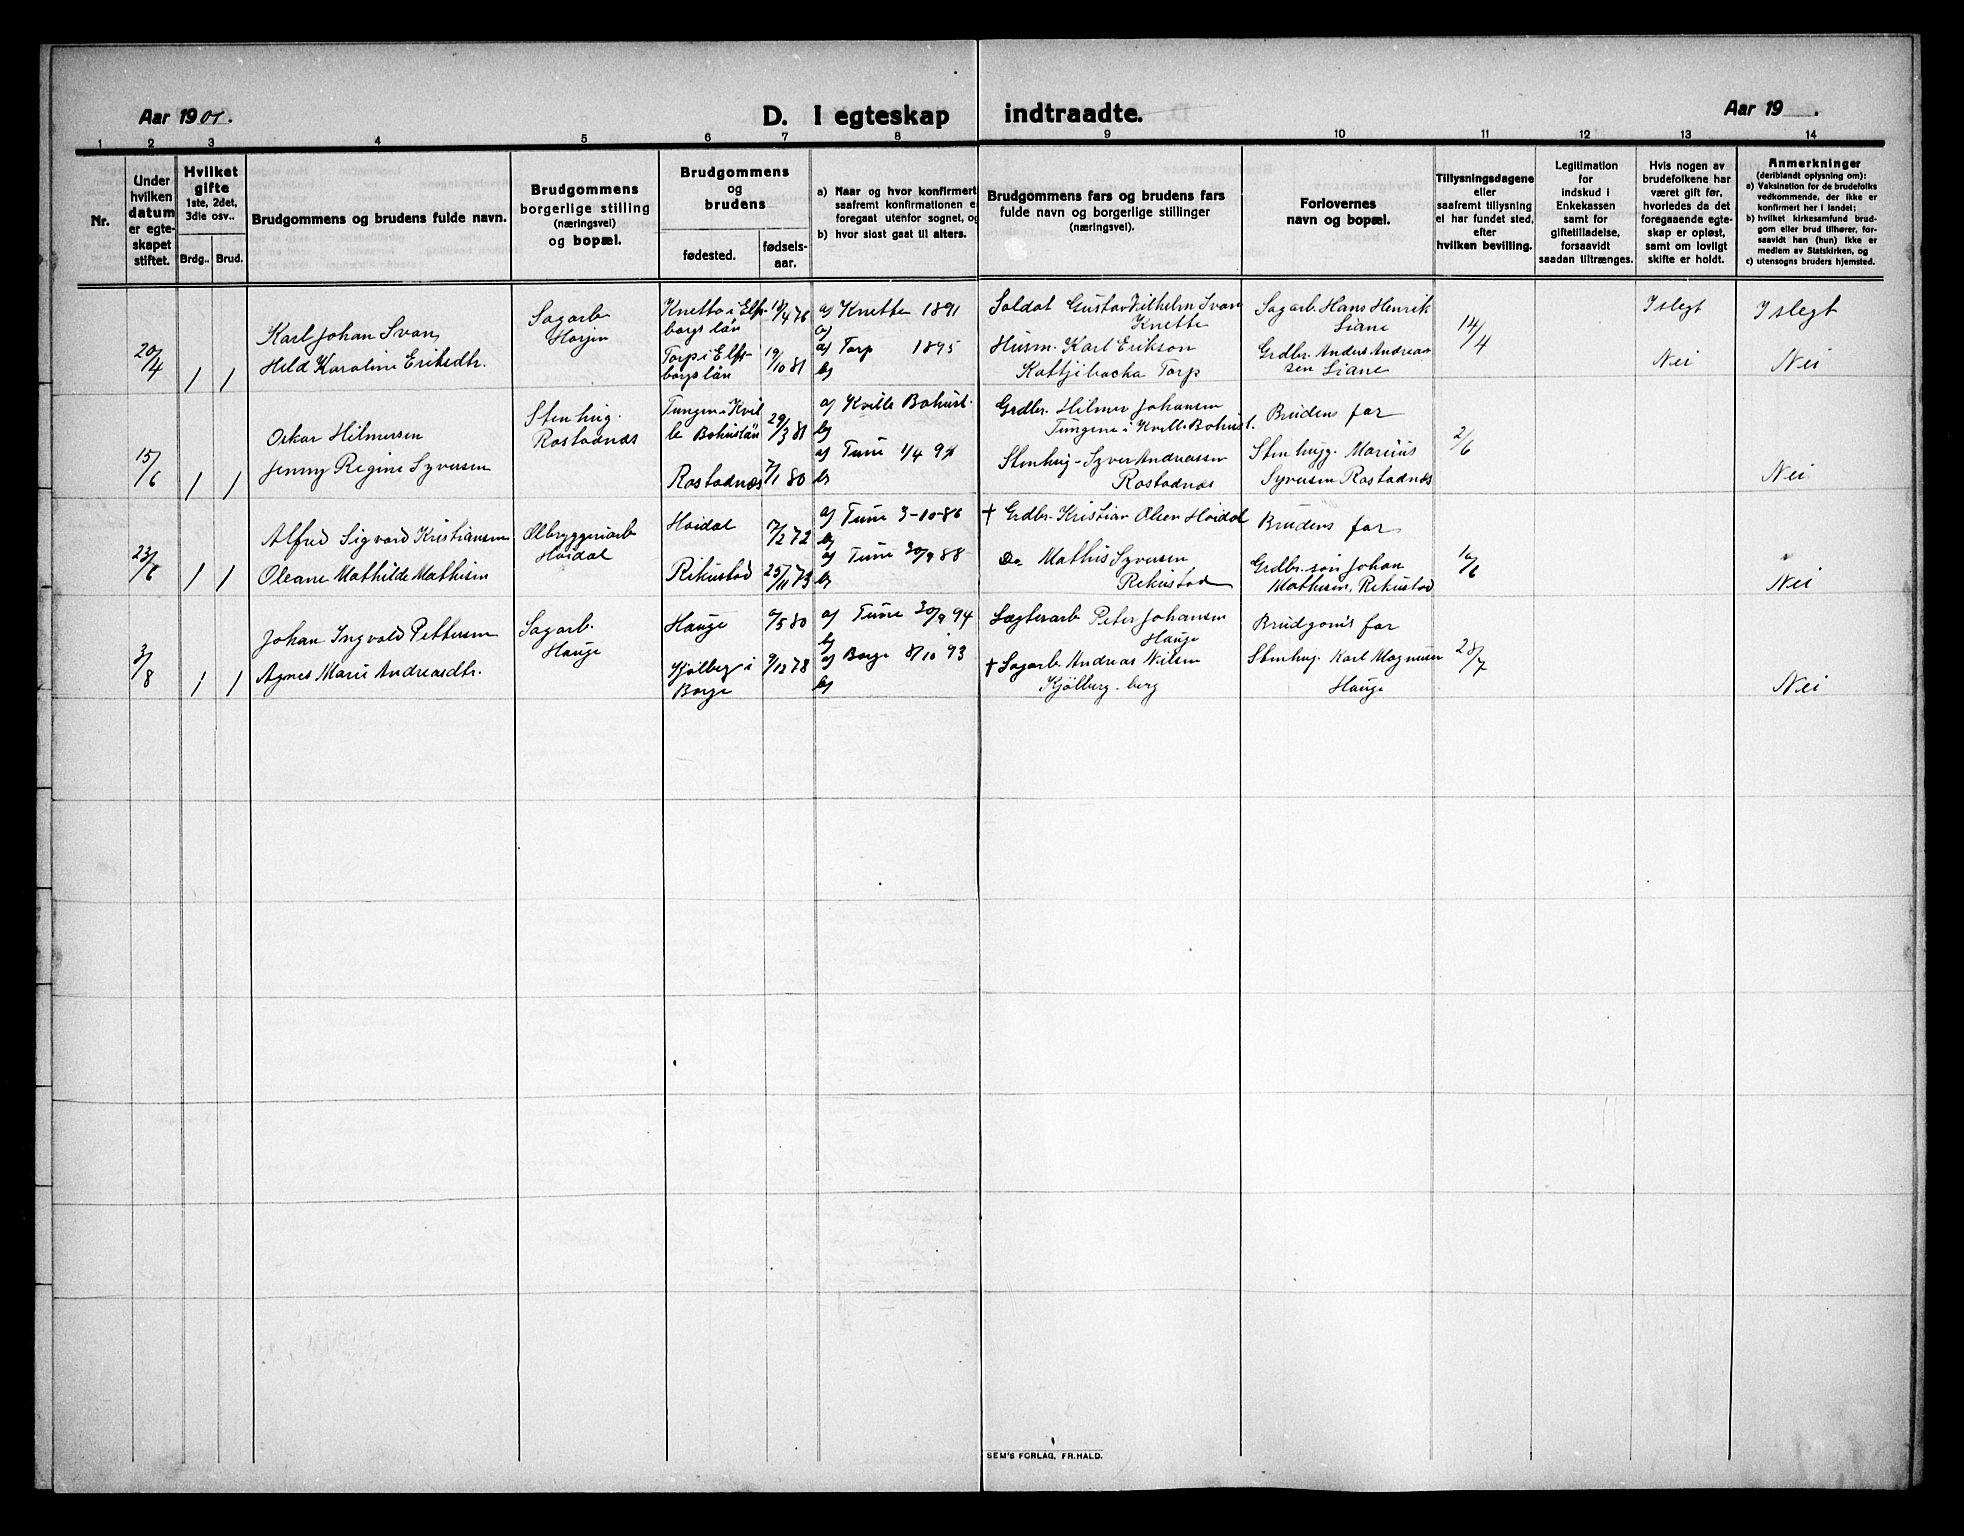 Aar 1901.
D. I egteskap indtraadte.
Aar 19 .
1 2 3 4 5 6 7 8 9 10 11 12 13 14
Nr.
Under
hvilken
datum
er egte-
skapet
stiftet.
Hvilket
gifte
1ste, 2det,
3die osv..
Brdg.. Brud.
Brudgommens og brudens fulde navn.
Brudgommens
borgerlige stilling
(næringsvei)
og bopæl.
Brudgommens
og
brudens
fødested.
fødsels-
aar.
a) Naar og hvor konfirmert
saafremt konfirmationen e
foregaat utenfor sognet, og
b) hvor sidst gaat til alters.
Brudgommens fars og brudens fars
fulde navn og borgerlige stillinger
(næringsvei).
Forlovernes
navn og bopæl.
Tillysningsdagene
eller
saafremt tillysning
ei har fundet sted,
efter
hvilken bevilling.
Legitimation
for
indskud i
Enkekassen
samt for
giftetilladelse,
forsaavidt
saadan tiltrænges.
Hvis nogen av
brudefolkene har
været gift før,
hvorledes da det
foregaaende egte-
skap er opløst,
samt om lovligt
skifte er holdt.
Anmerkninger
(deriblandt oplysning om):
a) Vaksination for de brudefolks
vedkommende, der ikke er
konfirmert her i landet;
b) hvilket kirkesamfund brud-
gom eller brud tilhører, for-
saavidt han (hun) ikke er
medlem av Statskirken, og
c) utensogns bruders hjemsted.
20/4
1 1
Karl Johan Svan,
Hild Karoline Eriksdtr.
Sagarb.
Knetta i Elfs-
borgs län
/4 76
Torp i Elfs-
borgs län
19/10 81
a) Knette 1891
b)
a) Torp 1895
b)
Soldat Gustav Vilhelm Svan
Knette
Husm. Karl Erikson
Kattjibacka Torp
Sagarb. Hans Henrik
Liane
Grdbr. Anders Andreas-
sen Liane
14/4
I slegt
Nei
I slegt
Nei
15/6
1 1
Oskar Hilmersen
Jenny Regine Syversen
Stenhug.
Rostadnæs
Tungen i Kvil
le Bohuslän
29/3 81
Rostadnæs
7/1 80
a) Kville Bohusl.
b)
a) Tune 1/4 9
b)
Grdbr. Hilmer Johansen
Tungene i Kville Bohusl.
Stenhug- Syver Andreassen
Rostadnæs
Brudens far
Stenhugg. Marius
Syversen Rostadnæs
2/6
Nei
23/6
1 1
Alfred Sigvard Kristiansen
Oleane Mathilde Mathisen
Ølbryggeriarb
Hoidal
Hoidal
7/2 72
Rikustad
25/11 73
a) Tune 3-10-86
b)
a) Tune 30/9 88
b)
† Grdbr. Kristian Olsen Hoidal
Do Mathis Syversen
Rikustad
Brudens far
Grdbr. søn Johan
Mathisen, Rikustad
16/6
"
Nei
3/8
1 1
Johan Ingvald Pettersen
Agnes Marie Andreasdtr.
Sagarb.
Hauge
Hauge
/5 80
Kjölberg i
Borge
9/12 78
a) Tune 30/9 94
b)
a) Borge 8/10 93
b)
Sagterarb Peter Johansen
Hauge
† Sagarb. Andreas Nilsen
Kjölberg-berg
Brudgom's far
Stenhug. Karl Magnusen
Hauge
28/7
Nei
SEM'S FORLAG, FR.HALD.